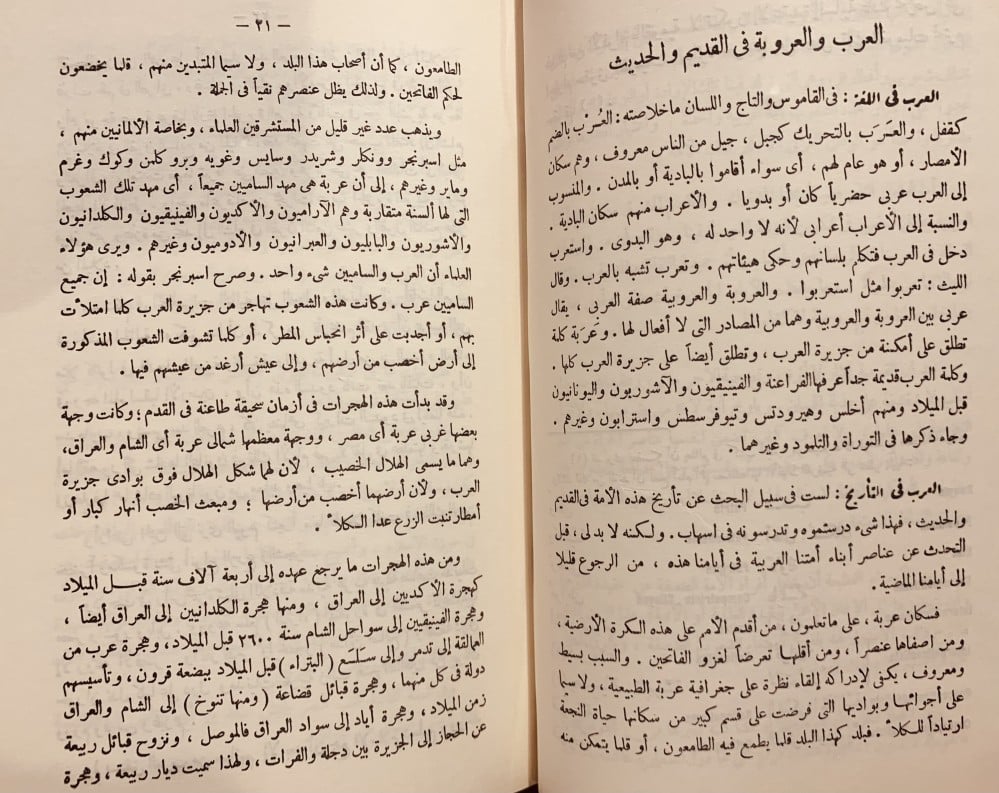 العرب والعروبة فى القديم والحديث
العرب فى اللغة : فى القاموس والتاج واللسان ما خلاصته : العُرْب بالضم
كقفل ، والعَرَب بالتحريك كجبل ، جيل من الناس معروف ، وهم سكان
الأمصار ، أو هو عام لهم ، أى سواء أقاموا بالبادية أو بالمدن . والمنسوب
إلى العرب عربى حضرياً كان أو بدويا . والأعراب منهم سكان البادية .
والنسبة إلى الأعراب أعرابى لأنه لا واحد له ، وهو البدوى . واستعرب
دخل فى العرب فتكلم بلسانهم وحكى هيئاتهم . وتعرب تشبه بالعرب . وقال
الليث : تعربوا مثل استعربوا . والعروبة والعروبية صفة العربى ، يقال
عربى بين العروبة والعروبية وهما من المصادر التى لا أفعال لها . وعَرَبَة كلمة
تطلق على أمكنة من جزيرة العرب ، وتطلق أيضاً على جزيرة العرب كلها .
وكلمة العرب قديمة جداً عرفها الفراعنة والفينيقيون والآشوريون واليونانيون
قبل الميلاد ومنهم أخلس وهيرودتس وتيوفرسطس واسترابون وغيرهم .
وجاء ذكرها فى التوراة والتلمود وغيرهما .
العرب فى التأريخ : لست فى سبيل البحث عن تأريخ هذه الأمة فى القديم
والحديث ، فهذا شىء درستموه وتدرسونه فى اسهاب . ولكنه لا بد لى ، قبل
التحدث عن عناصر أبناء أمتنا العربية فى أيامنا هذه ، من الرجوع قليلا
إلى أيامنا الماضية .
فسكان عربة ، على ما تعلمون ، من أقدم الأمم على هذه الكرة الأرضية ،
ومن اصفاها عنصراً ، ومن أقلها تعرضاً لغزو الفاتحين . والسبب بسيط
ومعروف ، يكفى لإدراكه إلقاء نظرة على جغرافية عربة الطبيعية ، ولا سيما
على أجوائها وبواديها التى فرضت على قسم كبير من سكانها حياة النجعة
ارتياداً للكلأ . فبلد كهذا البلد قلما يطمع فيه الطامعون ، أو قلما يتمكن منه
— ٣١ —
الطامعون ، كما أن أصحاب هذا البلد ، ولا سيما المتبدين منهم ، قلما يخضعون
لحكم الفاتحين . ولذلك يظل عنصرهم نقياً فى الجملة .
ويذهب عدد غير قليل من المستشرقين العلماء ، وبخاصة الألمانيين منهم ،
مثل اسبرنجر وونكلر وشريدر وسايس وغويه وبروكلمن وكوك وغرم
وماير وغيرهم ، إلى أن عربة هى مهد الساميين جميعاً ، أى مهد تلك الشعوب
التى لها ألسنة متقاربة وهم الآراميون والأكديون والفينيقيون والكلدانيون
والآشوريون والبابليون والعبرانيون والأدوميون وغيرهم . ويرى هؤلاء
العلماء أن العرب والساميين شىء واحد . وصرح اسبرنجر بقوله : إن جميع
الساميين عرب . وكانت هذه الشعوب تهاجر من جزيرة العرب كلما امتلأت
بهم ، أو أجدبت على أثر انحباس المطر ، أو كلما تشوفت الشعوب المذكورة
إلى أرض أخصب من أرضهم ، وإلى عيش أرغد من عيشهم فيها .
وقد بدأت هذه الهجرات فى أزمان سحيقة طاعنة فى القدم ؛ وكانت وجهة
بعضها غربى عربة أى مصر ، ووجهة معظمها شمالى عربة أى الشام والعراق،
وهما ما يسمى الهلال الخصيب ، لأن لهما شكل الهلال فوق بوادى جزيرة
العرب ، ولأن أرضهما أخصب من أرضها ؛ ومبعث الخصب أنهار كبار أو
أمطار تنبت الزرع عدا الكلأ .
ومن هذه الهجرات ما يرجع عهده إلى أربعة آلاف سنة قبل الميلاد
كهجرة الأكديين إلى العراق ، ومنها هجرة الكلدانيين إلى العراق أيضاً ،
وهجرة الفينيقيين إلى سواحل الشام سنة ٢٦٠٠ قبل الميلاد ، وهجرة عرب من
العمالقة إلى تدمر وإلى سَلَسَع ( البتراء ) قبل الميلاد ببضعة قرون ، وتأسيسهم
دولة فى كل منهما ، وهجرة قبائل قضاعة ( ومنها تنوخ ) إلى الشام والعراق
زمن الميلاد ، وهجرة أياد إلى سواد العراق فالموصل ، ونزوح قبائل ربيعة
عن الحجاز إلى الجزيرة بين دجلة والفرات ، ولهذا سميت ديار ربيعة ، وهجرة